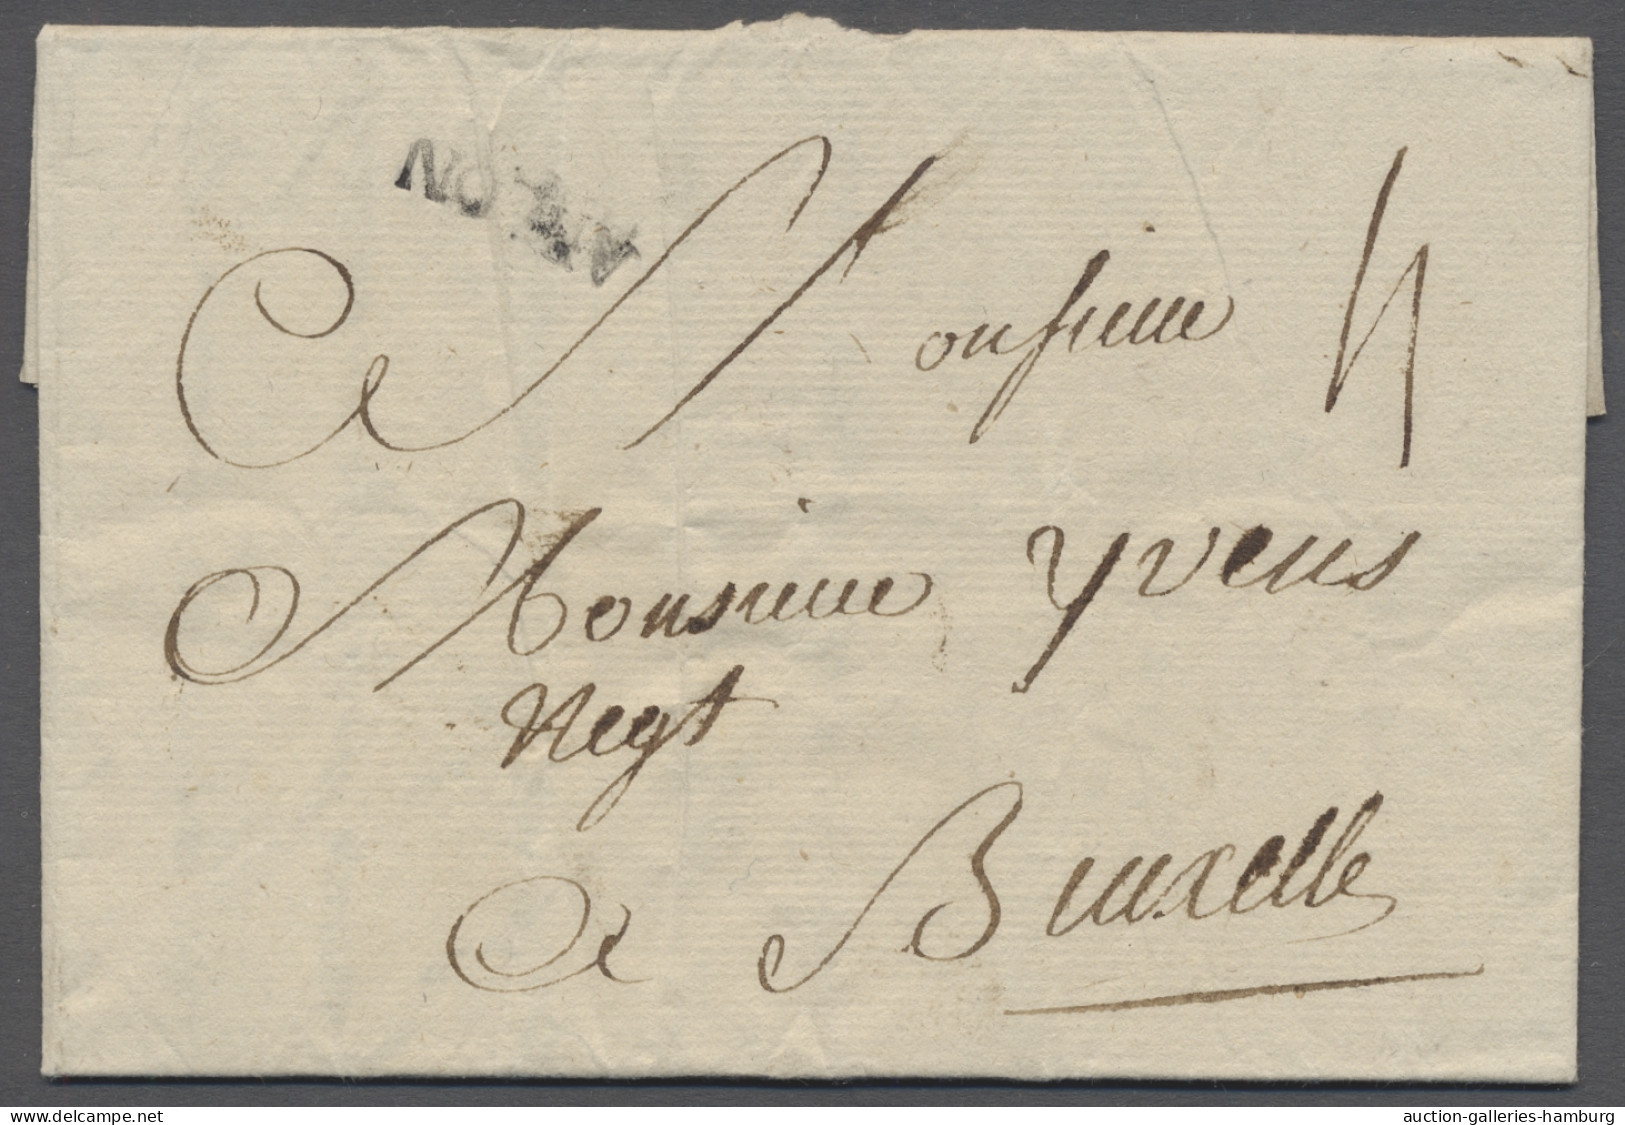 A Monsieur 4
Monsieur yvens
Negt
a Bruxelle
www.delcampe.net
auction-galleries-hamburg